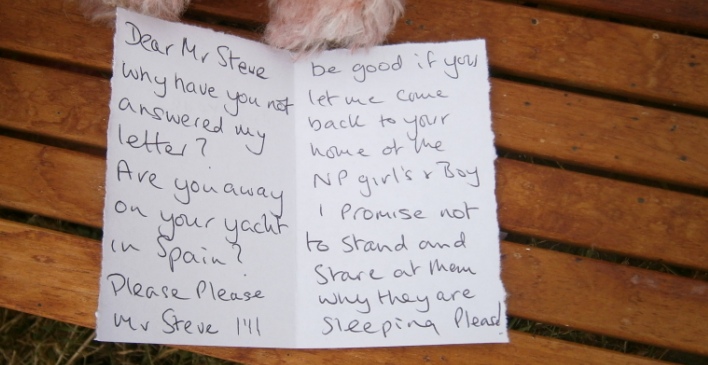 Dear Mr Steve
why have you not
answered my
letter?
Are you away
on your yacht
in Spain?
Please Please
Mr Steve I'll
be good if you
let me come
back to your
home of the
NP girl's & Boy
I Promise not
to stand and
stare at them
why they are
sleeping Please!